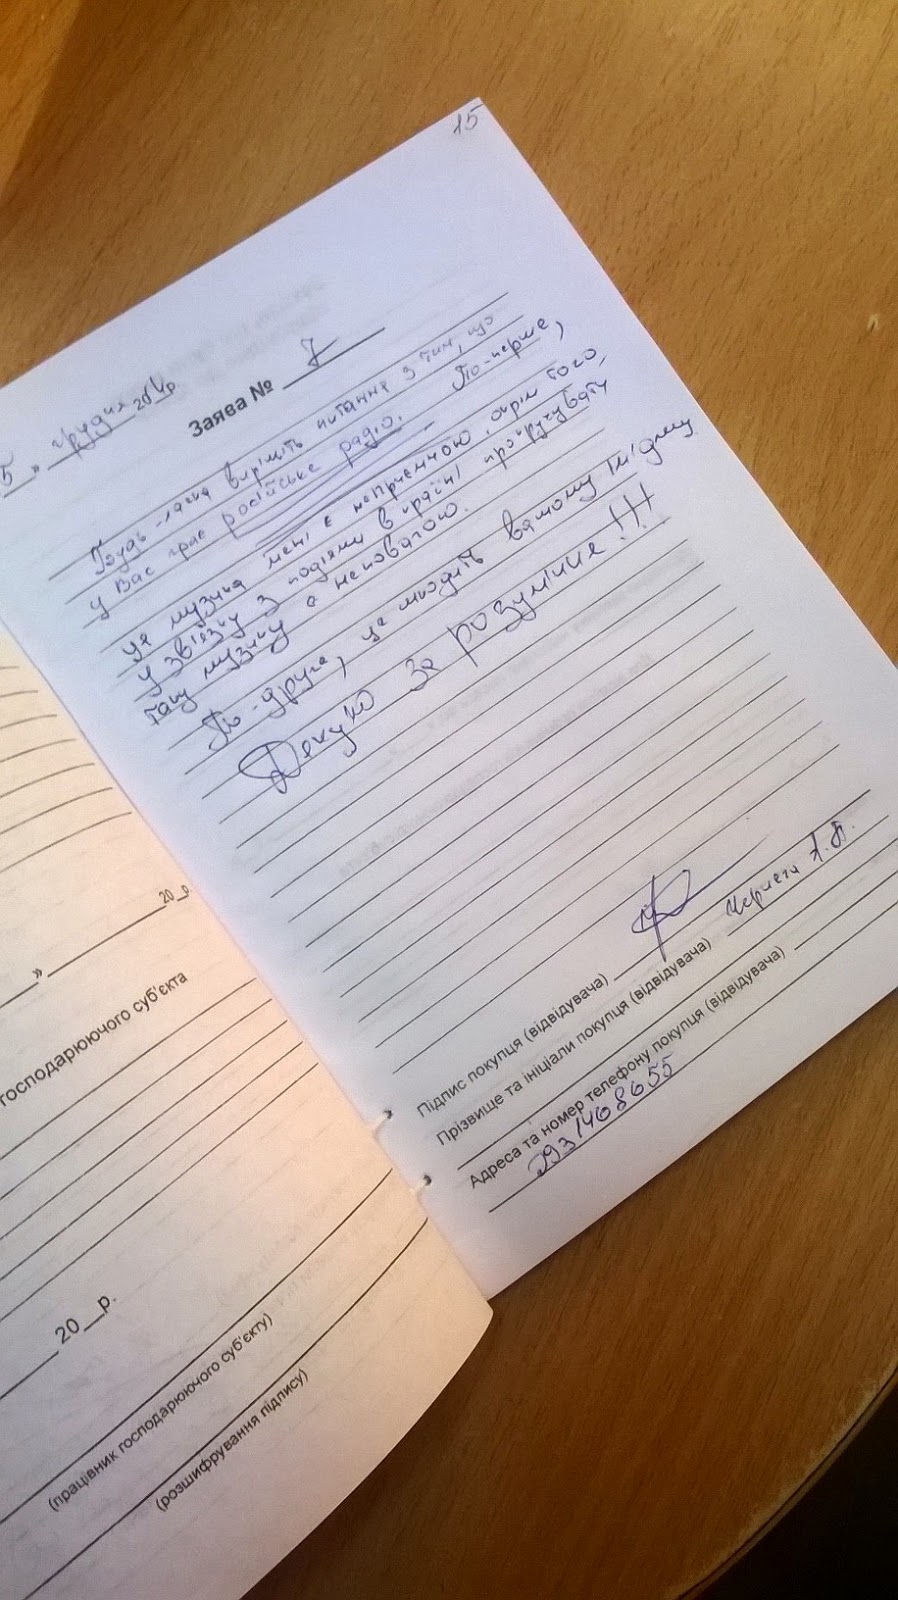 15
5 » грудня 2014р
Заява № 7
Будь-ласка вирішіть питання з тим, що
у Вас грає російське радіо. По-перше,
ця музика мені є неприємною, окрім того,
у зв'язку з подіями в країні прокручувати
таку музику є неповагою.
По-друге, це шкодить вашому іміджу
Дякую за розуміння!!!
Підпис покупця (відвідувача)
Прізвище та ініціали покупця (відвідувача) Чернега А.П.
Адреса та номер телефону покупця (відвідувача)
0931468655
» 20 р.
господарюючого суб'єкта
20 р.
(працівник господарюючого суб'єкту)
(розшифрування підпису)